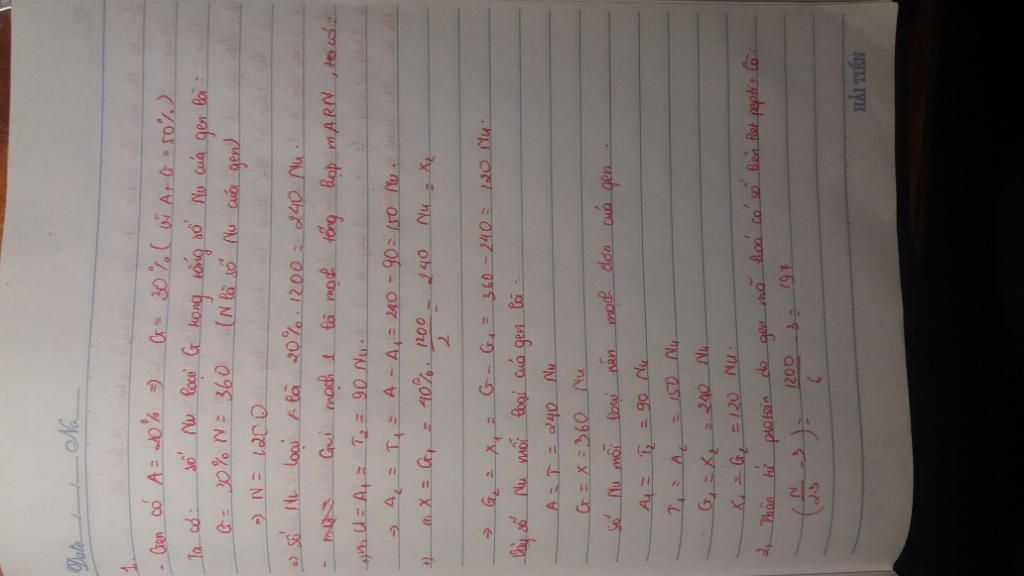 Date No
1.
- Gen có A = 20% => G = 30% ( vì A + G = 50% )
Ta có: số Nu loại G trong tổng số Nu của gen là:
G = 30% N = 360 (N là số Nu của gen)
=> N = 1200
=> số Nu loại A là 20% . 1200 = 240 Nu.
- Gọi mạch 1 là mạch tổng hợp mARN, ta có:
+) mU = A1 = T2 = 90 Nu.
=> A2 = T1 = A - A1 = 240 - 90 = 150 Nu.
+) mX = G1 = 40% . 1200/2 = 240 Nu = X2
=> G2 = X1 = G - G1 = 360 - 240 = 120 Nu.
Vậy số Nu mỗi loại của gen là:
A = T = 240 Nu
G = X = 360 Nu
số Nu mỗi loại trên mạch đơn của gen.
A1 = T2 = 90 Nu
T1 = A2 = 150 Nu
G1 = X2 = 240 Nu
X1 = G2 = 120 Nu.
2, Phân tử protein do gen mã hoá có số liên kết peptit là:
(N/2.3 - 3) = 1200/6 - 3 = 197
HẢI TIẾN